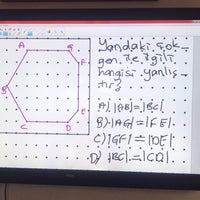 A
G
F
B
E
C
D
Yandaki çok-
gen ile ilgili
hangisi yanlış-
tır?
A) |AB|=|BC|
B) |AG|=|FE|
C) |GF|=|DE|
D) |BC|=|CD|